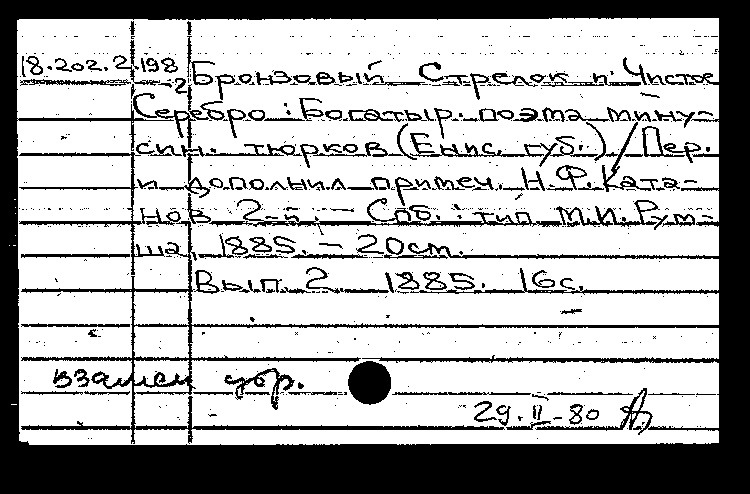 18.202.2.198
2
Бронзовый Стрелок и Чистое
Серебро : Богатыр. поэма мину-
син. тюрков (Енис. губ.) / Пер.
и дополнил примеч. Н.Ф. Ката-
нов 2-й. — Спб. : тип М.И. Рум-
ша, 1885. – 20см.
Вып. 2. 1885. 16с.
взамен утр.
29.II-80